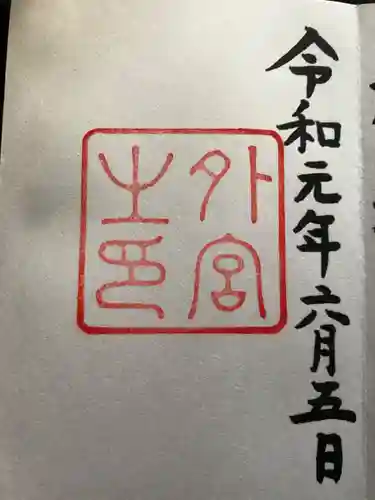 令和元年六月五日
外宮
之印